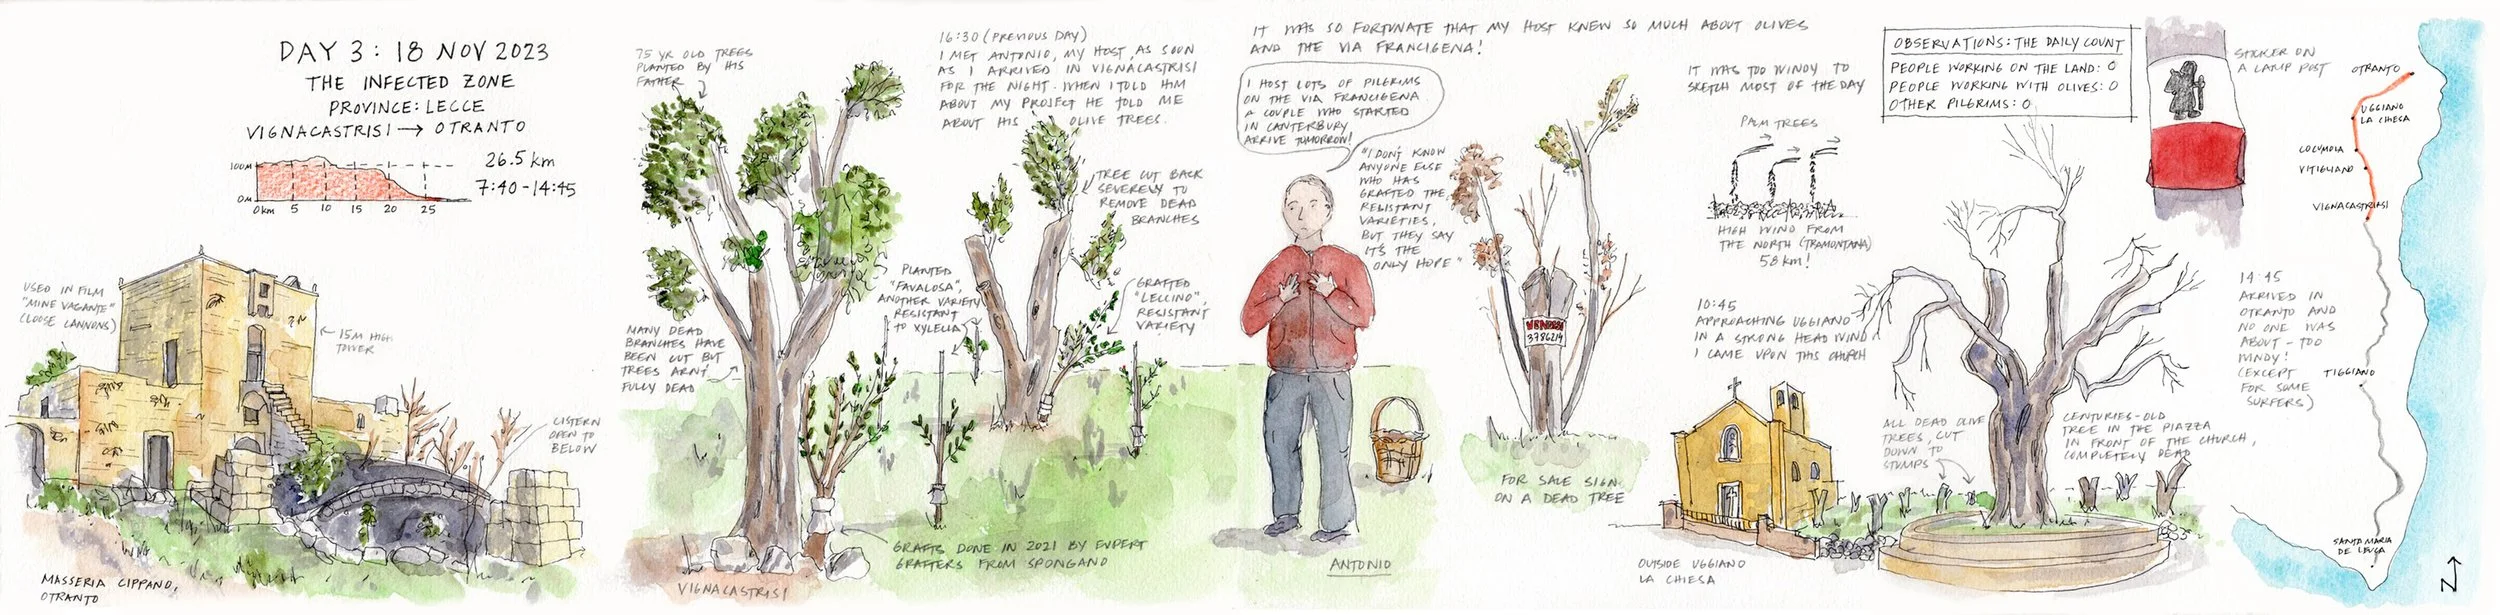 DAY 3: 18 NOV 2023
THE INFECTED ZONE
PROVINCE: LECCE
VIGNACASTRISI → OTRANTO
100M
0M
0km 5 10 15 20 25
26.5 km
7:40 - 14:45
USED IN FILM
"MINE VAGANTE"
(LOOSE CANNONS)
← 15M HIGH
TOWER
CISTERN
OPEN TO
BELOW
MASSERIA CIPPANO,
OTRANTO
75 YR OLD TREES
PLANTED BY HIS
FATHER
MANY DEAD
BRANCHES HAVE
BEEN CUT BUT
TREES ARN'T
FULLY DEAD
VIGNACASTRISI
16:30 (PREVIOUS DAY)
I MET ANTONIO, MY HOST, AS SOON
AS I ARRIVED IN VIGNACASTRISI
FOR THE NIGHT. WHEN I TOLD HIM
ABOUT MY PROJECT HE TOLD ME
ABOUT HIS OLIVE TREES.
TREE CUT BACK
SEVERELY TO
REMOVE DEAD
BRANCHES
PLANTED
"FAVALOSA",
ANOTHER VARIETY
RESISTANT
TO XYLELLA
GRAFTED
"LECCINO",
RESISTANT
VARIETY
GRAFTS DONE IN 2021 BY EXPERT
GRAFTERS FROM SPONGANO
IT WAS SO FORTUNATE THAT MY HOST KNEW SO MUCH ABOUT OLIVES
AND THE VIA FRANCIGENA!
I HOST LOTS OF PILGRIMS
ON THE VIA FRANCIGENA.
A COUPLE WHO STARTED
IN CANTERBURY
ARRIVE TOMORROW!
"I DON'T KNOW
ANYONE ELSE
WHO HAS
GRAFTED THE
RESISTANT
VARIETIES,
BUT THEY SAY
IT'S THE
ONLY HOPE"
ANTONIO
VENDESI
3786214
FOR SALE SIGN
ON A DEAD TREE
IT WAS TOO WINDY TO
SKETCH MOST OF THE DAY
PALM TREES
HIGH WIND FROM
THE NORTH (TRAMONTANA)
58 km!
10:45
APPROACHING UGGIANO
IN A STRONG HEAD WIND
I CAME UPON THIS CHURCH
OUTSIDE UGGIANO
LA CHIESA
ALL DEAD OLIVE
TREES, CUT
DOWN TO
STUMPS
CENTURIES-OLD
TREE IN THE PIAZZA
IN FRONT OF THE CHURCH,
COMPLETELY DEAD
OBSERVATIONS: THE DAILY COUNT
PEOPLE WORKING ON THE LAND: 0
PEOPLE WORKING WITH OLIVES: 0
OTHER PILGRIMS: 0
STICKER ON
A LAMP POST
14:45
ARRIVED IN
OTRANTO AND
NO ONE WAS
ABOUT - TOO
WINDY!
(EXCEPT
FOR SOME
SURFERS)
OTRANTO
UGGIANO
LA CHIESA
COCUMOLA
VITIGLIANO
VIGNACASTRISI
TIGGIANO
SANTA MARIA
DE LEUCA
N